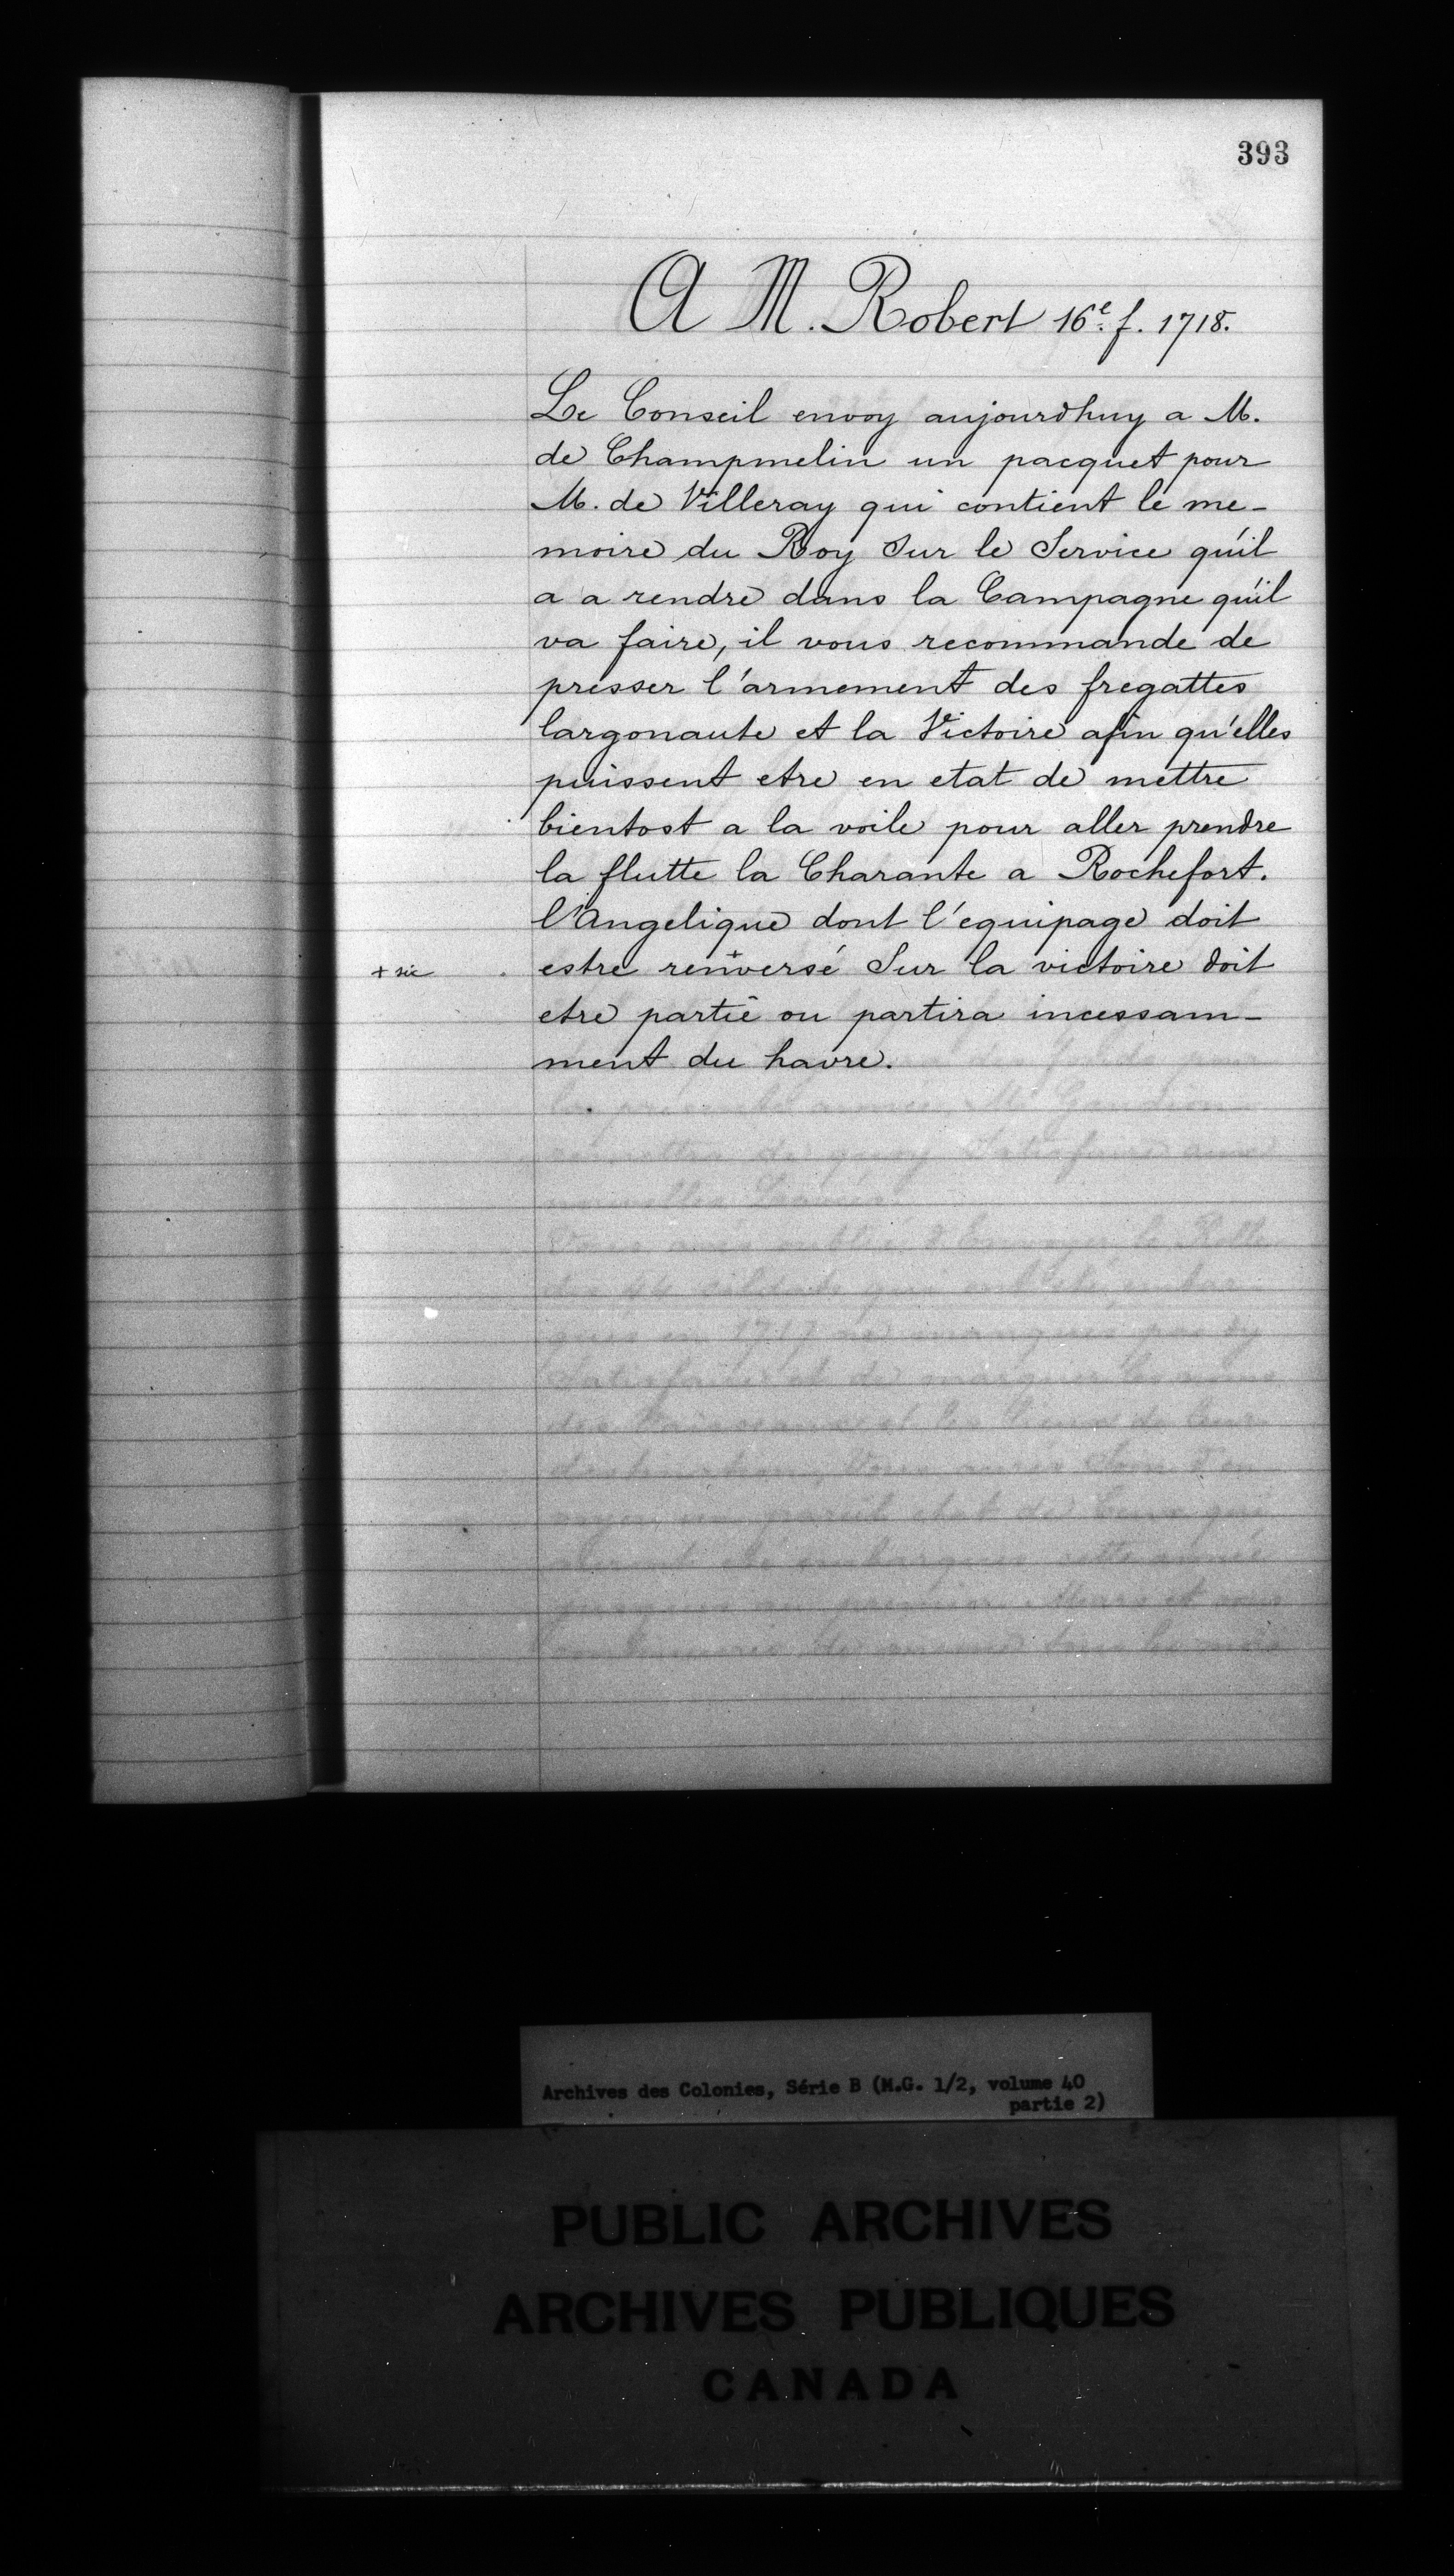 393
A M. Robert 16e. f. 1718.
Le Conseil envoy aujourdhuy a M.
de Champmelin un pacquet pour
M. de Villeray qui contient le me-
moire du Roy Sur le Service qu'il
a a rendre dans la Campagne qu'il
va faire, il vous recommande de
presser l'armement des fregattes
largonaute et la Victoire afin qu'elles
puissent etre en etat de mettre
bientost a la voile pour aller prendre
la flutte la Charante a Rochefort.
l'Angelique dont l'equipage doit
+ sic estre renversé+ Sur la victoire doit
etre partie ou partira incessam-
ment du havre.
Archives des Colonies, Série B (M.G. 1/2, volume 40
partie 2)
PUBLIC ARCHIVES
ARCHIVES PUBLIQUES
CANADA